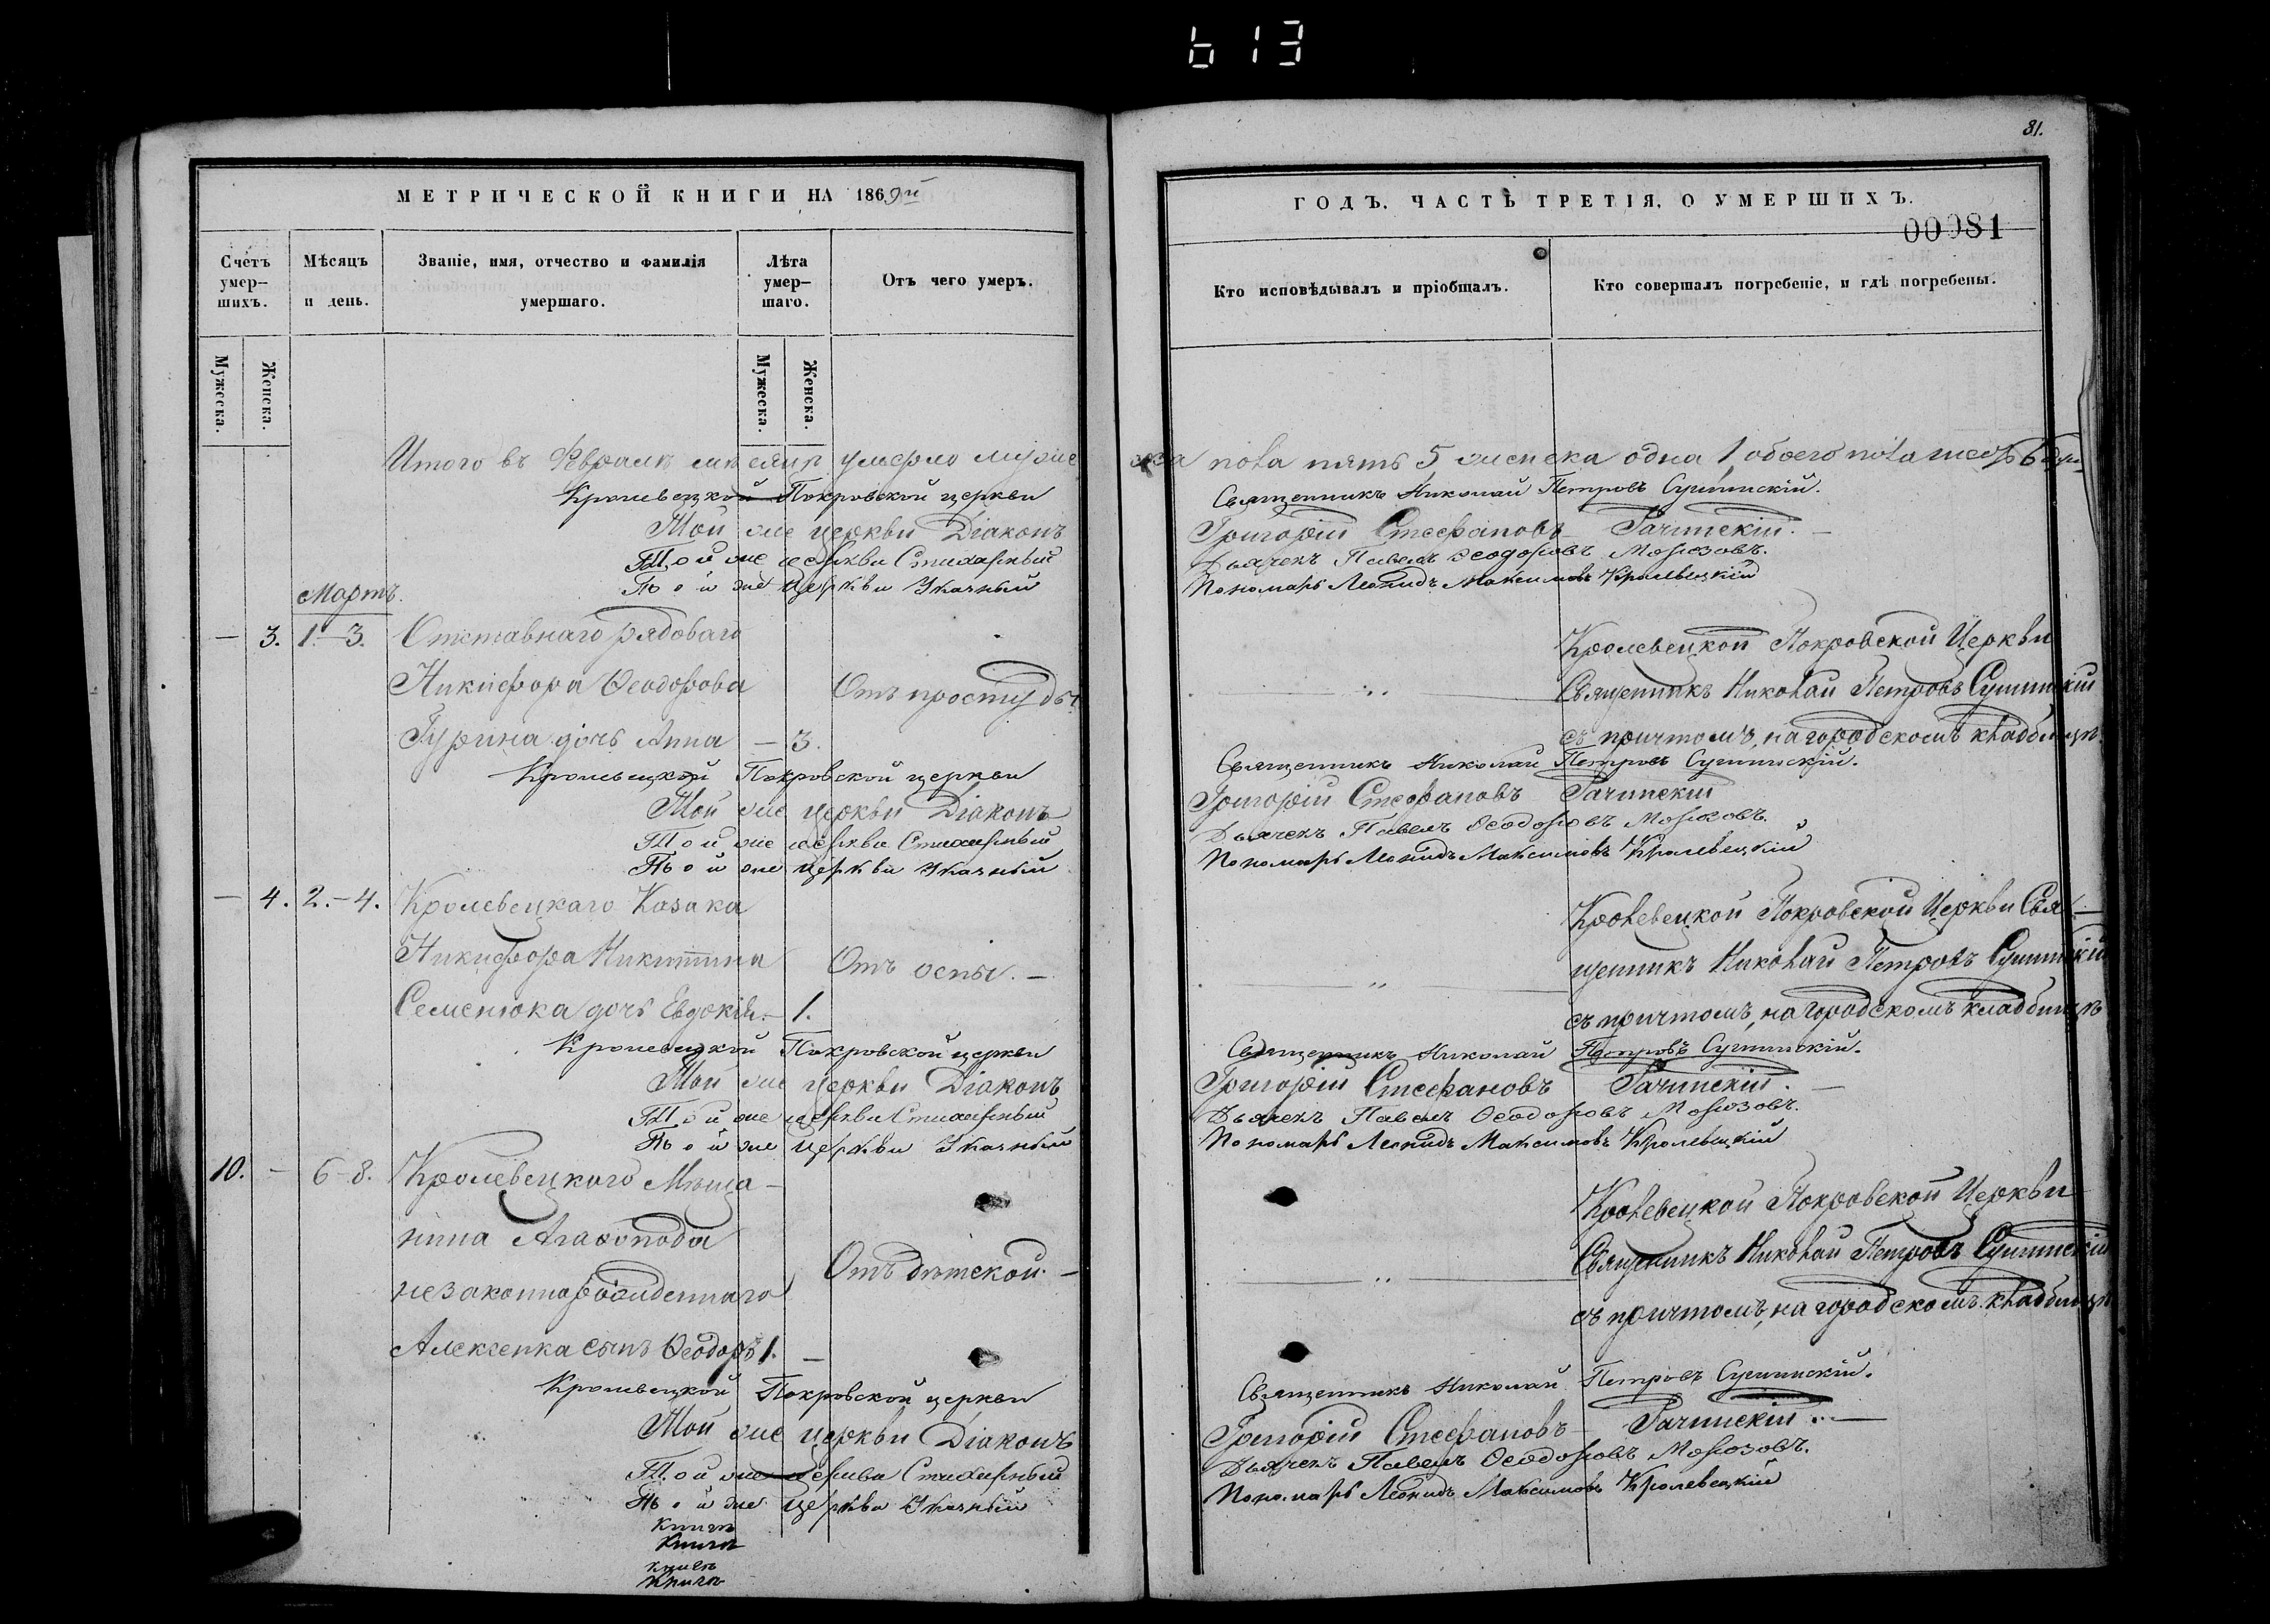 613
81.
МЕТРИЧЕСКОЙ КНИГИ НА 1869й
ГОДЪ. ЧАСТЬ ТРЕТІЯ, О УМЕРШИХЪ.
00081
Счетъ умер-шихъ.
Мѣсяцъ и день.
Званіе, имя, отчество и фамилія умершаго.
Лѣта умер-шаго.
Отъ чего умеръ.
Кто исповѣдывалъ и пріобщалъ.
Кто совершалъ погребеніе, и гдѣ погребены.
Мужеска.
Женска.
Мужеска.
Женска.
Итого въ Февралѣ мѣсяцѣ умерло муже
ска пола пять 5 женска одна 1, обоего пола шесть 6 душ
Кролевецкой Покровской церкви Священникъ Николай Петровъ Сушинскій.
Той же церкви Діаконъ Григорій Стефановъ Гачинскій. —
Той же церкви Стихарный Дьячекъ Павелъ Ѳеодоровъ Морозовъ.
Той же церкви Указный Пономарь Леонидъ Максимовъ Кролевецкій
Мартъ.
— 3. 1.—3. Отставнаго рядоваго
Никифора Ѳеодорова
Гурина дочь Анна — 3.
Отъ простуды.
Кролевецкой Покровской Церкви
Священникъ Николай Петровъ Сушинскій
съ причтомъ, на городскомъ кладбищѣ.
Кролевецкой Покровской церкви Священникъ Николай Петровъ Сушинскій.
Той же церкви Діаконъ Григорій Стефановъ Гачинскій
Той же церкви Стихарный Дьячекъ Павелъ Ѳеодоровъ Морозовъ.
Той же церкви Указный Пономарь Леонидъ Максимовъ Кролевецкій
— 4. 2.—4. Кролевецкаго Козака
Никифора Никитина
Семенюка дочь Евдокія. — 1.
Отъ оспы. —
Кролевецкой Покровской Церкви Свя-
щенникъ Николай Петровъ Сушинскій
съ причтомъ, на городскомъ кладбищѣ
Кролевецкой Покровской церкви Священникъ Николай Петровъ Сушинскій.
Той же церкви Діаконъ Григорій Стефановъ Гачинскій. —
Той же церкви Стихарный Дьячекъ Павелъ Ѳеодоровъ Морозовъ.
Той же церкви Указный Пономарь Леонидъ Максимовъ Кролевецкій
10. — 6—8. Кролевецкаго Мѣща-
нина Агаѳопода
незаконнорожденнаго
Алексенка сынъ Ѳеодоръ 1. —
Отъ дѣтской. —
Кролевецкой Покровской Церкви
Священникъ Николай Петровъ Сушинскій
съ причтомъ, на городскомъ кладбищѣ
Кролевецкой Покровской церкви Священникъ Николай Петровъ Сушинскій.
Той же церкви Діаконъ Григорій Стефановъ Гачинскій. —
Той же церкви Стихарный Дьячекъ Павелъ Ѳеодоровъ Морозовъ.
Той же церкви Указный Пономарь Леонидъ Максимовъ Кролевецкій